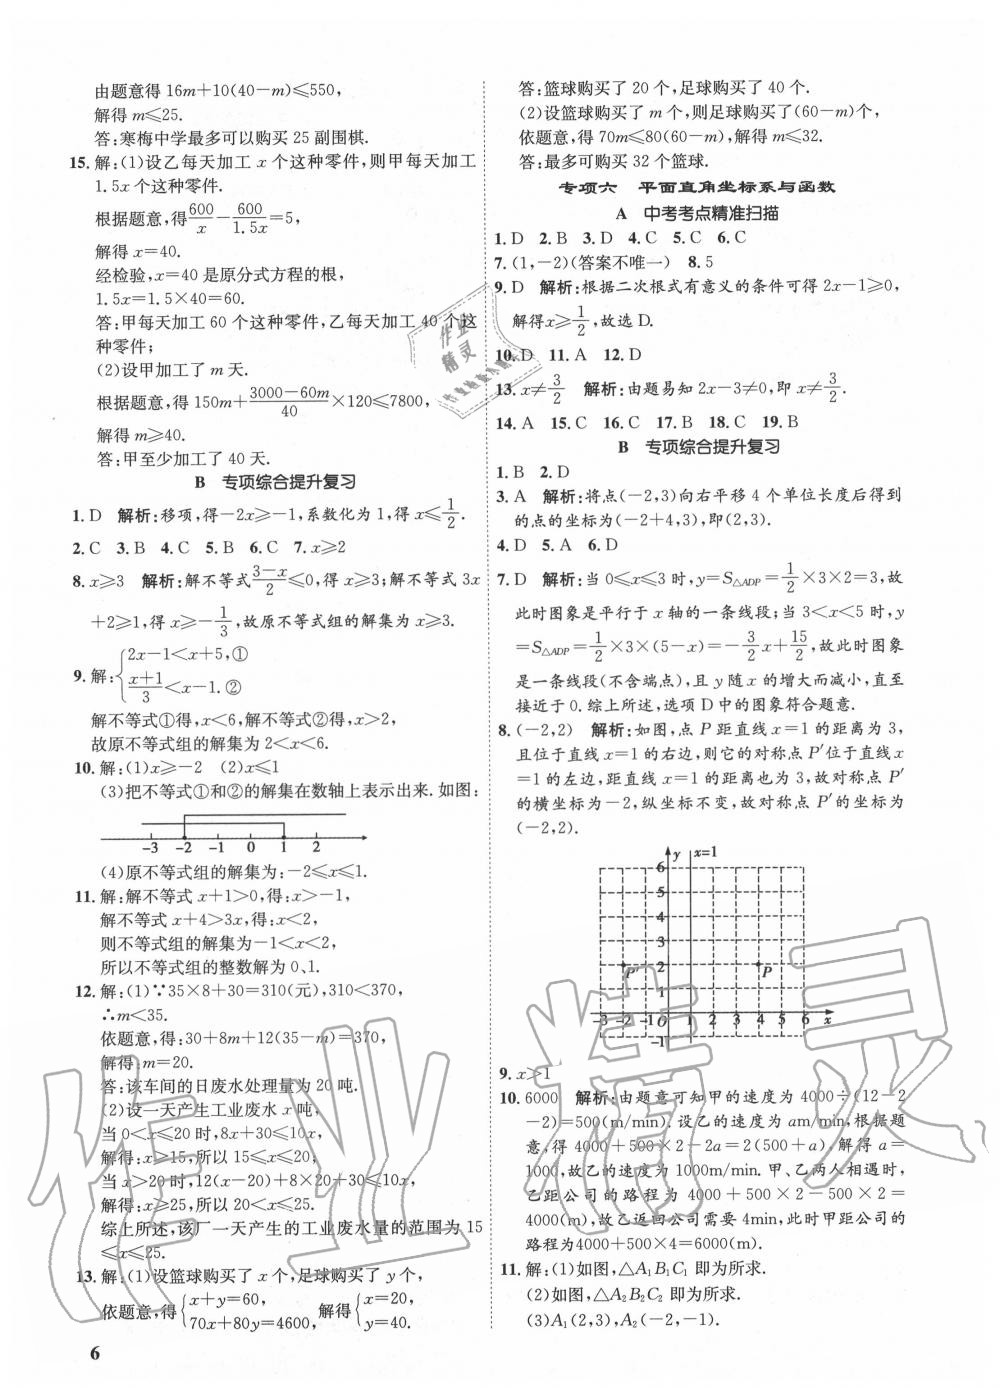 由题意得16m+10(40-m)≤550,
解得 m≤25.
答:寒梅中学最多可以购买 25 副围棋.
15. 解:(1)设乙每天加工 x 个这种零件,则甲每天加工
1.5x 个这种零件.
根据题意,得600/x-600/1.5x=5,
解得 x=40.
经检验,x=40 是原分式方程的根,
1.5x=1.5×40=60.
答:甲每天加工 60 个这种零件,乙每天加工 40 个这
种零件;
(2)设甲加工了 m 天.
根据题意,得150m+3000-60m/40×120≤7800,
解得 m≥40.
答:甲至少加工了 40 天.
B 专项综合提升复习
1. D 解析:移项,得-2x≥-1,系数化为 1,得 x≤1/2.
2. C 3. B 4. C 5. C 6. C 7. x≥2
8. x≥3 解析:解不等式3-x/2≤0,得 x≥3;解不等式 3x
+2≥1,得 x≥-1/3,故原不等式组的解集为 x≥3.
9. 解:{2x-1<x+5,①
x+1/3<x-1.②
解不等式①得,x<6,解不等式②得,x>2,
故原不等式组的解集为 2<x<6.
10. 解:(1)x≥-2 (2)x≤1
(3)把不等式①和②的解集在数轴上表示出来.如图:
-3 -2 -1 0 1 2
(4)原不等式组的解集为:-2≤x≤1.
11. 解:解不等式 x+1>0,得:x>-1,
解不等式 x+4>3x,得:x<2,
则不等式组的解集为-1<x<2,
所以不等式组的整数解为 0、1.
12. 解:(1)∵35×8+30=310(元),310<370,
∴m<35.
依题意,得:30+8m+12(35-m)=370,
解得:m=20.
答:该车间的日废水处理量为 20 吨.
(2)设一天产生工业废水 x 吨,
当 0<x≤20 时,8x+30≤10x,
解得:x≥15,所以 15≤x≤20;
当 x>20 时,12(x-20)+8×20+30≤10x,
解得:x≤25,所以 20<x≤25.
综上所述,该厂一天产生的工业废水量的范围为 15
≤x≤25.
13. 解:(1)设篮球购买了 x 个,足球购买了 y 个,
依题意,得{x+y=60, 解得{x=20,
70x+80y=4600, y=40.
6
答:篮球购买了 20 个,足球购买了 40 个.
(2)设篮球购买了 m 个,则足球购买了(60-m)个,
依题意,得 70m≤80(60-m),解得 m≤32.
答:最多可购买 32 个篮球.
专项六 平面直角坐标系与函数
A 中考考点精准扫描
1. D 2. B 3. D 4. C 5. C 6. C
7. (1,-2)(答案不唯一) 8. 5
9. D 解析:根据二次根式有意义的条件可得 2x-1≥0,
解得x≥1/2,故选 D.
10. D 11. A 12. D
13. x≠3/2 解析:由题易知 2x-3≠0,即 x≠3/2.
14. A 15. C 16. C 17. B 18. C 19. B
B 专项综合提升复习
1. B 2. D
3. A 解析:将点(-2,3)向右平移 4 个单位长度后得到
的点的坐标为(-2+4,3),即(2,3).
4. D 5. A 6. D
7. D 解析:当 0≤x≤3 时,y=S△ADP=1/2×3×2=3,故
此时图象是平行于 x 轴的一条线段;当 3<x<5 时,y
=S△ADP=1/2×3×(5-x)=-3/2x+15/2,故此时图象
是一条线段(不含端点),且 y 随 x 的增大而减小,直
接近于 0.综上所述,选项 D 中的图象符合题意.
8. (-2,2) 解析:如图,点 P 距直线 x=1 的距离为 3,
且位于直线 x=1 的右边,则它的对称点 P′位于直线 x
=1 的左边,距直线 x=1 的距离也为 3,故对称点 P′
的横坐标为-2,纵坐标不变,故对称点 P′的坐标为
(-2,2).
y x=1
6
5
4
3
P′ 2 P
1
-3 -2 -1 O 1 2 3 4 5 6 x
-1
9. x>1
10. 6000 解析:由题意可知甲的速度为 4000÷(12-2
-2)=500(m/min).设乙的速度为 am/min,根据题
意,得 4000+500×2-2a=2(500+a).解得 a=
1000,故乙的速度为 1000m/min.甲、乙两人相遇时,
乙距公司的路程为 4000+500×2-500×2=
4000(m),故乙返回公司需要 4min,此时甲距公司的
路程为4000+500×4=6000(m).
11. 解:(1)如图,△A₁B₁C₁ 即为所求.
(2)如图,△A₂B₂C₂ 即为所求.
(3)A₁(2,3),A₂(-2,-1).
作业精灵
作业
精灵